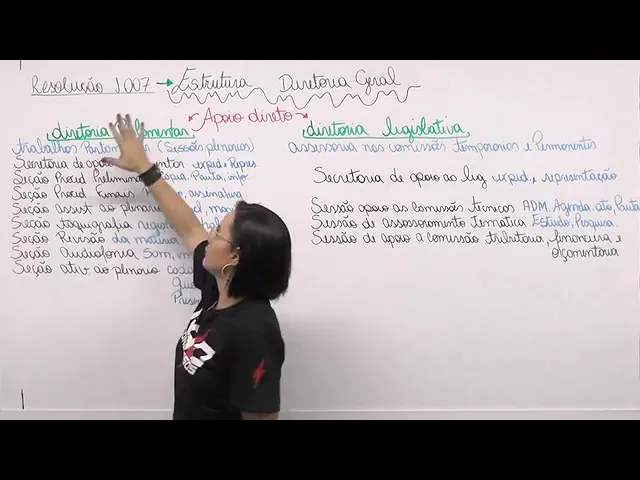 Resolução 1.007 → Estrutura Diretoria Geral
Apoio direto
diretoria
trabalhos Parlamentar (Sessões plenarios)
Secretoria de apoio exped. e Repres.
Seção Proced Preliminar Pauta, info
Seção Proced Finais assinatura
Seção assist ao plenario
Seção taquigrafia
Seção Revisão da materia
Seção Audiofonia Som,
Seção ativ ao plenario
diretoria legislativa
assessoria nas comissões temporarios e Permanentes
Secretoria de apoio ao leg exped. e representação
Sessão apoio as comissões tecnicos ADM Agenda, ato, Pauta
Sessão de assessoramento Tematica Estudo, Pesquisa.
Sessão de apoio a comissão tributaria, financeira e
orçamentaria